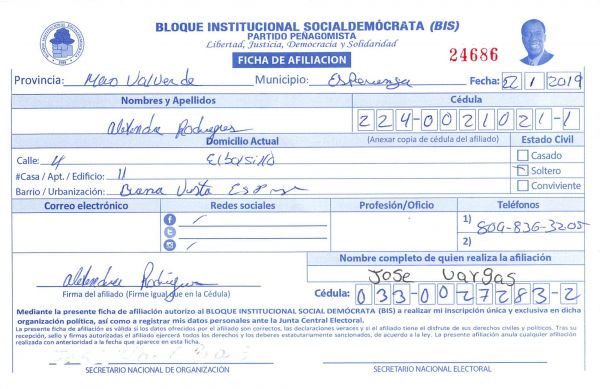 BLOQUE INSTITUCIONAL SOCIALDEMÓCRATA (BIS)
PARTIDO PEÑAGOMISTA
Libertad, Justicia, Democracia y Solidaridad
FICHA DE AFILIACION
24686
Provincia: Mao Valverde Municipio: Esperanza Fecha: 1 2019
Nombres y Apellidos Cédula
Alexandra Rodrigues 224-0021021-1
Domicilio Actual (Anexar copia de cédula del afiliado) Estado Civil
Calle: 4
Casado
#Casa / Apt. / Edificio: 11
Soltero
Barrio / Urbanización: Buena Vista
Conviviente
Correo electrónico Redes sociales Profesión/Oficio Teléfonos
1) 809-836-3205
2)
Nombre completo de quien realiza la afiliación
Jose Vargas
Alexandra Rodrigues
Firma del afiliado (Firme igual que en la Cédula) Cédula: 033-0027283-2
Mediante la presente ficha de afiliación autorizo al BLOQUE INSTITUCIONAL SOCIAL DEMÓCRATA (BIS) a realizar mi inscripción única y exclusiva en dicha
organización política, así como a registrar mis datos personales ante la Junta Central Electoral.
La presente ficha de afiliación es válida si los datos ofrecidos por el afiliado son correctos, las declaraciones veraces y si el afiliado tiene el disfrute de sus derechos civiles y políticos. Tras su
recepción, sello y firmas autorizadas el afiliado ejercerá todos los derechos y los deberes estatutariamente sancionados, de acuerdo a la ley. La presente afiliación anula cualquier afiliación
realizada con anterioridad a la fecha que aparece en esta ficha.
SECRETARIO NACIONAL DE ORGANIZACIÓN SECRETARIO NACIONAL ELECTORAL